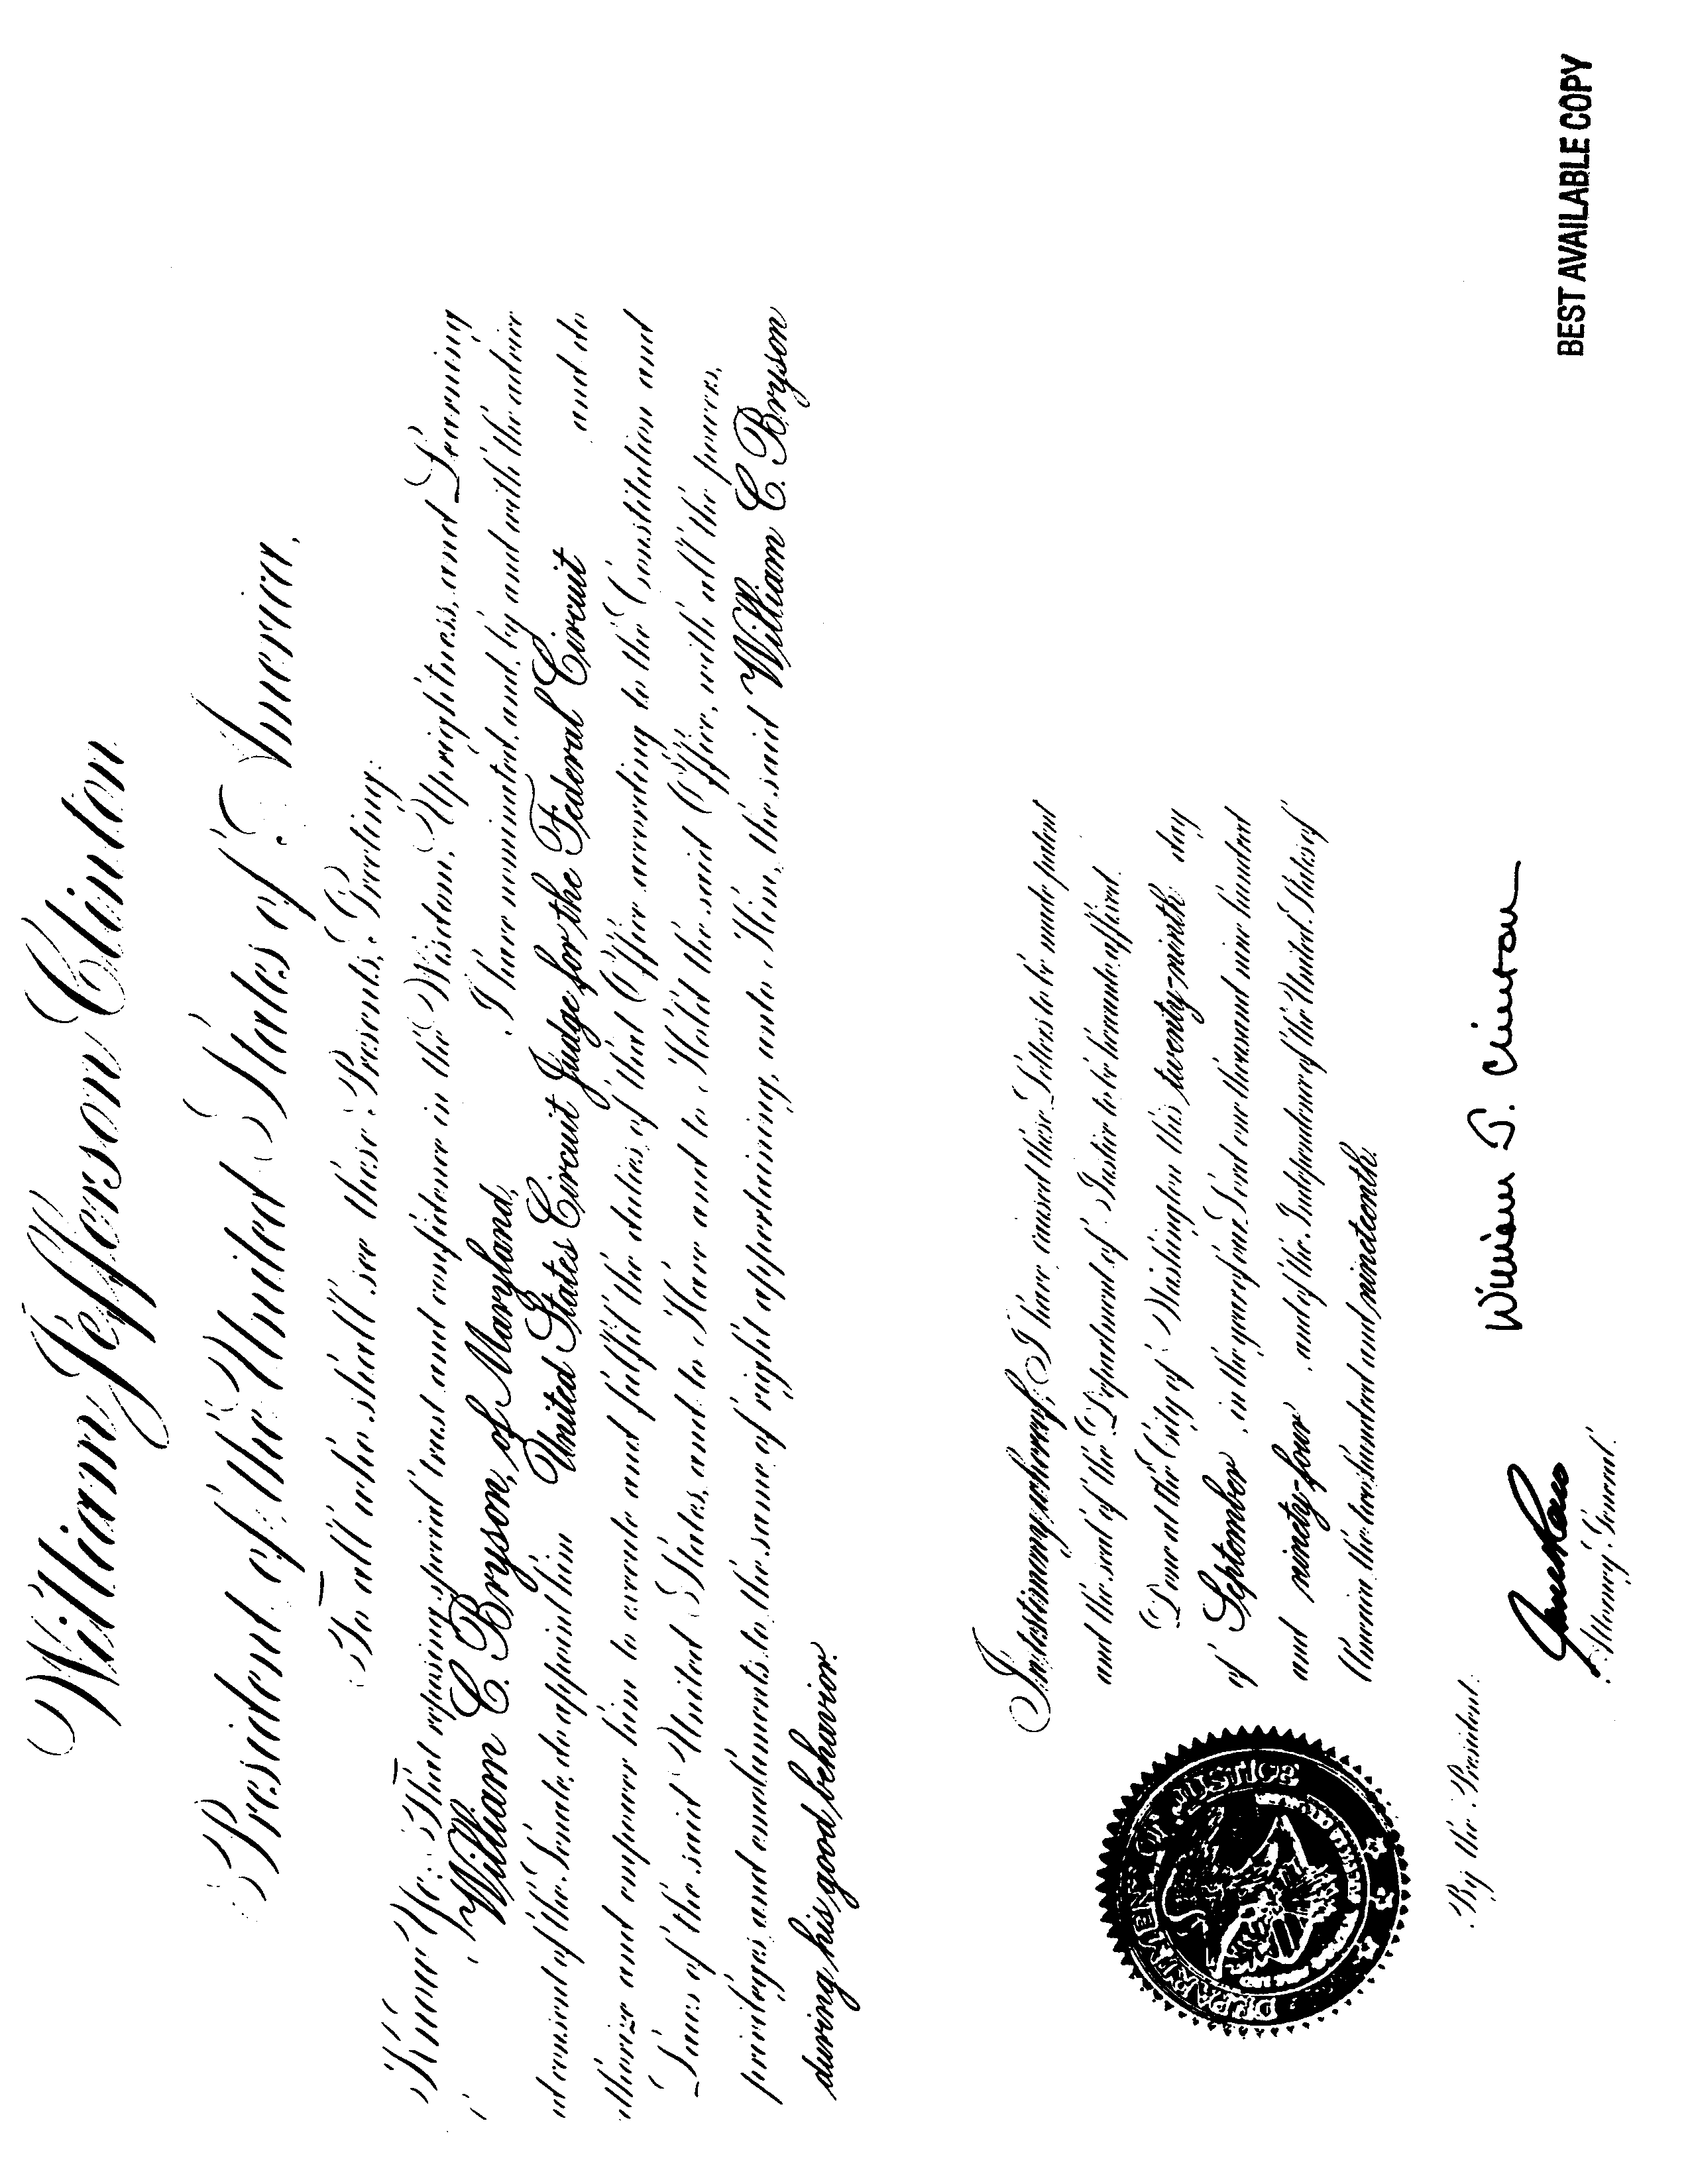 William Jefferson Clinton
President of the United States of America,
To all who shall see these Presents, Greeting:
Know Ye: That reposing special trust and confidence in the Wisdom, Uprightness, and Learning
of William C. Bryson, of Maryland, I have nominated, and, by and with the advice
and consent of the Senate, do appoint him United States Circuit Judge for the Federal Circuit and do
authorize and empower him to execute and fulfil the duties of that Office according to the Constitution and
Laws of the said United States, and to Have and to Hold the said Office, with all the powers,
privileges and emoluments to the same of right appertaining, unto Him, the said William C. Bryson
during his good behavior.
In testimony whereof, I have caused these Letters to be made patent
and the seal of the Department of Justice to be hereunto affixed.
Done at the City of Washington this twenty-ninth day
of September, in the year of our Lord one thousand nine hundred
and ninety-four, and of the Independence of the United States of
America the two hundred and nineteenth.
DEPARTMENT OF JUSTICE
William J. Clinton
By the President:
Janet Reno
Attorney General.
BEST AVAILABLE COPY